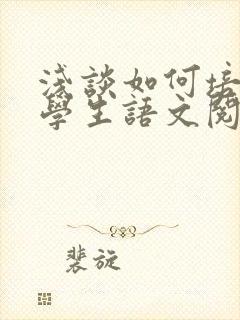 淺談如何培
學生語文閱
裴旋